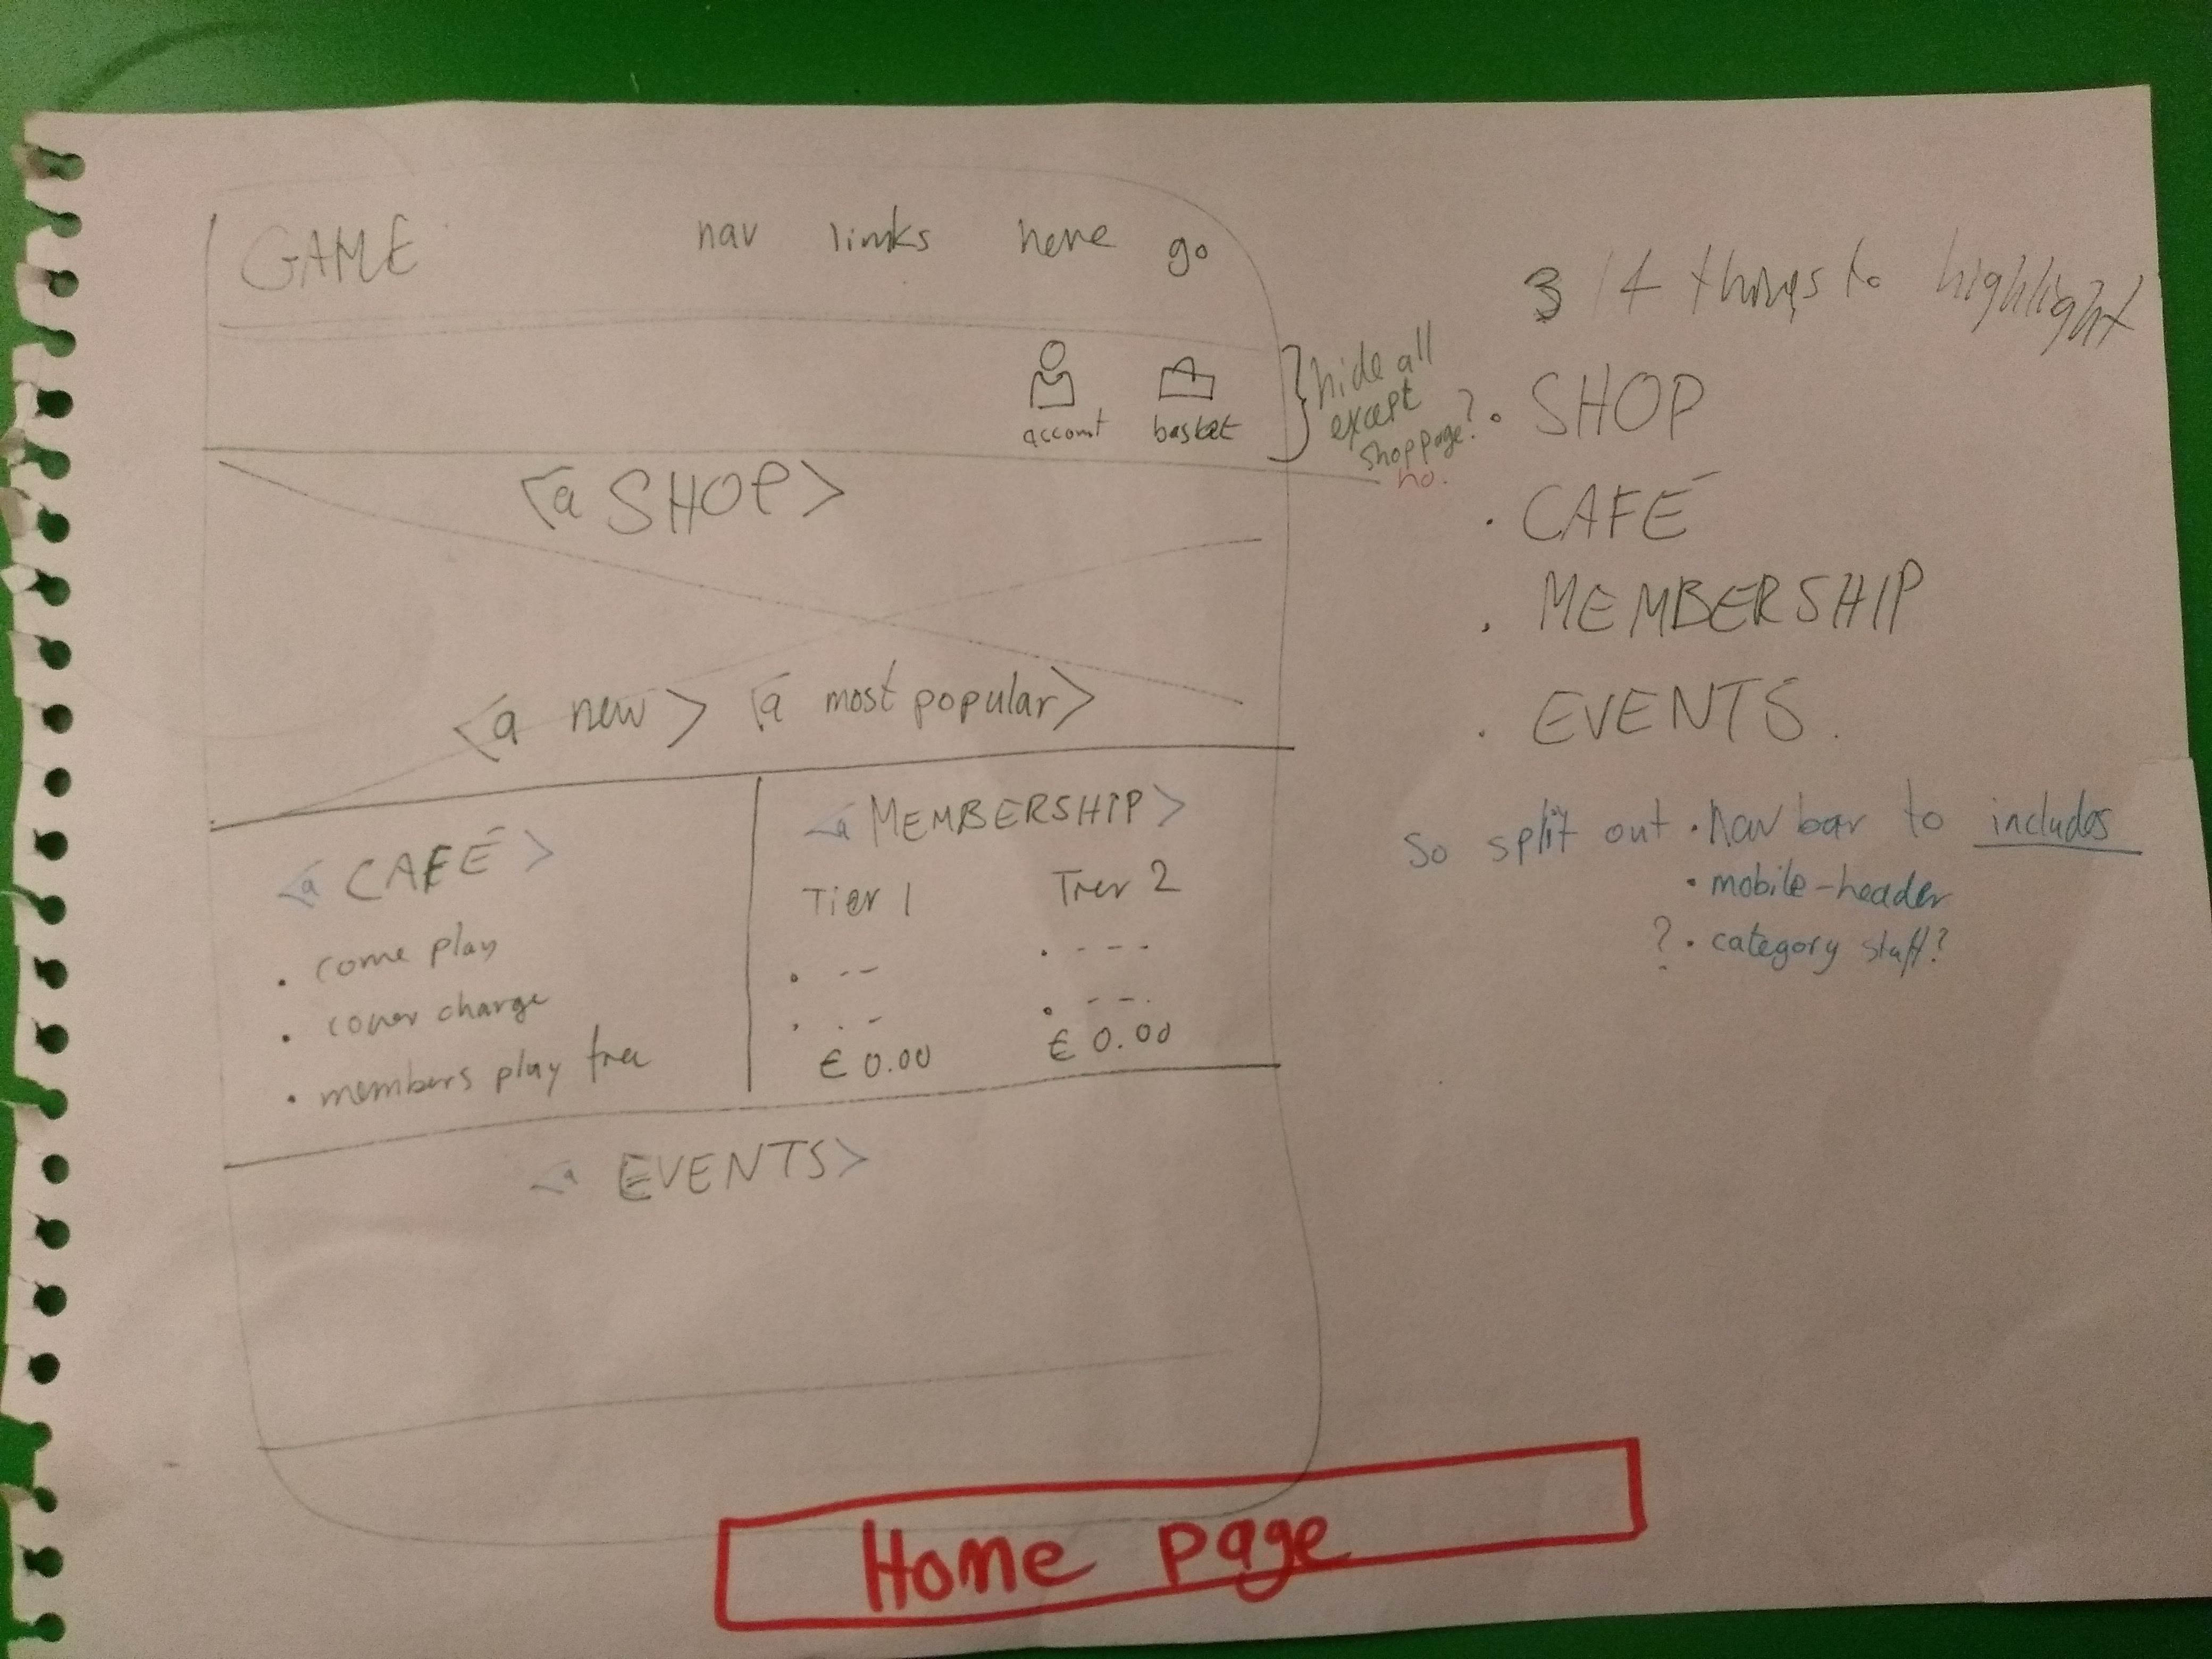 GAME nav links here go
account basket
} hide all
except
shop page?
no.
<a SHOP>
<a new> <a most popular>
<a CAFÉ>
• come play
• cover charge
• members play free
<a MEMBERSHIP>
Tier 1 Tier 2
• -- • ---
• -- • ---
€ 0.00 € 0.00
<a EVENTS>
3/4 things to highlight
• SHOP
• CAFÉ
• MEMBERSHIP
• EVENTS.
So split out • nav bar to includes
• mobile-header
? • category stuff?
Home page